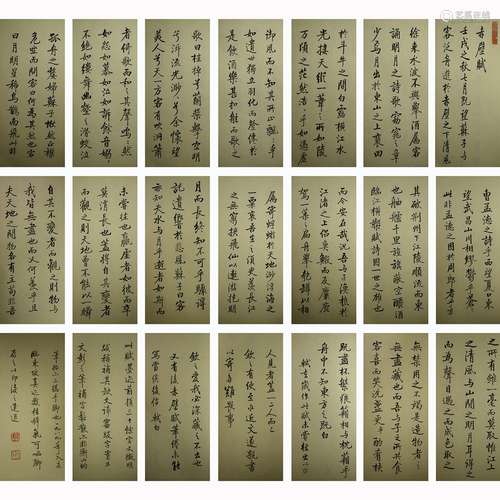 赤壁賦
壬戌之秋七月既望蘇子與
客泛舟遊於赤壁之下清風
徐來水波不興舉酒屬客
誦明月之詩歌窈窕之章
少焉月出於東山之上裴回
於斗牛之間白露橫江水
光接天縱一葦之所如陵
萬頃之茫然浩浩乎如馮虛
御風而不知其所止飄飄乎
如遺世獨立羽化而登僊於
是飲酒樂甚扣舷而歌之
歌曰桂棹兮蘭槳擊空明
兮泝流光渺渺兮余懷望
美人兮天一方客有吹洞簫
者倚歌而和之其聲嗚嗚然
如怨如慕如泣如訴餘音嫋嫋
不絕如縷舞幽壑之潛蛟泣
孤舟之嫠婦蘇子愀然正襟
危坐而問客曰何為其然也客
曰月明星稀烏鵲南飛此非
曹孟德之詩乎西望夏口東
望武昌山川相繆鬱乎蒼蒼
此非孟德之困於周郎者乎方
其破荊州下江陵順流而東
也舳艫千里旌旗蔽空釃酒
臨江橫槊賦詩固一世之雄也
而今安在哉況吾與子漁樵於
江渚之上侶魚蝦而友麋鹿
駕一葉之扁舟舉匏樽以相
屬寄蜉蝣於天地渺浮海之
一粟哀吾生之須臾羨長江
之無窮挾飛仙以遨遊抱明
月而長終知不可乎驟得
託遺響於悲風蘇子曰客
亦知夫水與月乎逝者如斯而
未嘗往也贏虛者如彼而卒
莫消長也蓋將自其變者
而觀之則天地曾不能以一瞬
自其不變者而觀之則物與
我皆無盡也而又何羨乎且
夫天地之間物各有主苟非吾
之所有雖一毫而莫取惟江上
之清風與山間之明月耳得之
而為聲目遇之而成色取之
無禁用之不竭是造物者之
無盡藏也而吾與子之所共食
客喜而笑洗盞更酌肴核
既盡杯盤狼藉相與枕藉乎
舟中不知東方之既白
軾去歲作此賦未嘗輕出以示
人見者蓋一二人而已
欽之有使至求近文遂親書
以寄多難畏事
欽之愛我必深藏之不出也
又有後赤壁賦筆倦未能
寫當俟後信軾白